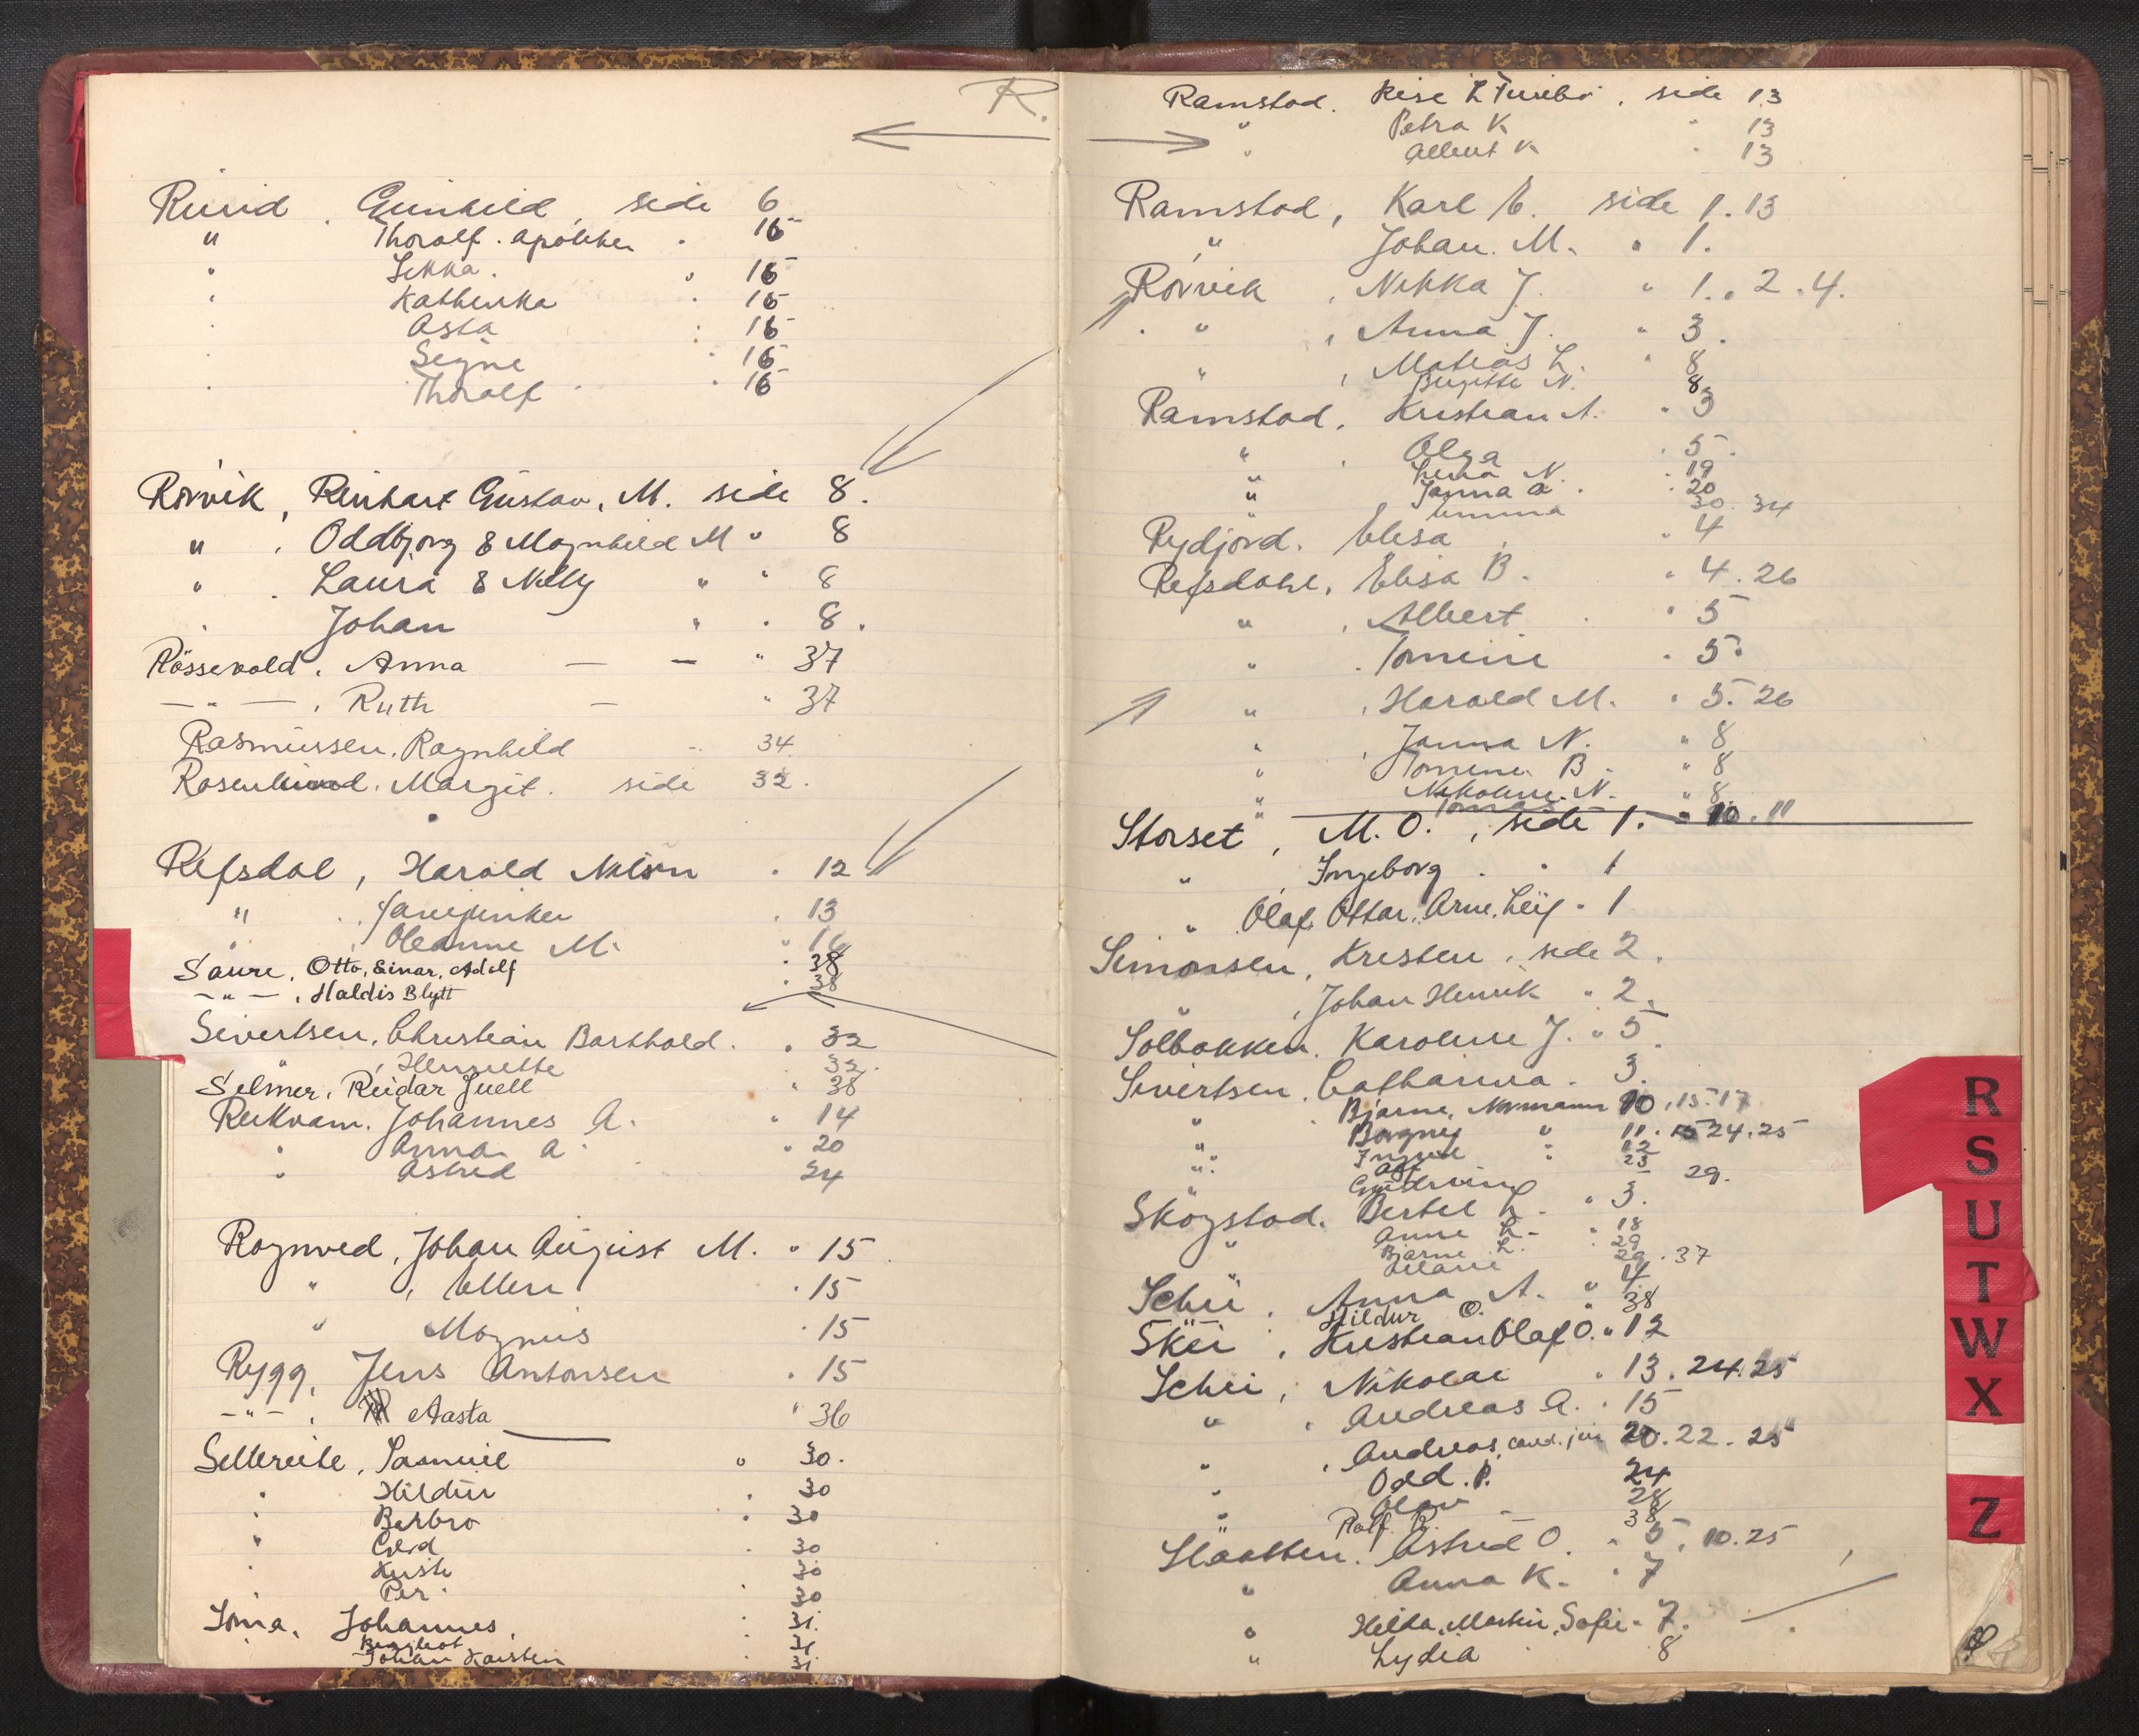 R.
Rusid, Gunhild, side 6
" Thoralf. apoteker . 16
" Lekka. " 16
" Kathinka . 16
Asta . 16
Segne . 16
Thoralf . 16
Rørvik, Reinhart Gustav, M. side 8.
" , Oddbjorg & Magnhild M " 8
" . Laura & Nelly " " 8
. Johan " . 8.
Røssevold, Anna — — " 37
— " — , Ruth — " 37
Rasmussen, Ragnhild " 34
Rosenlund, Margit. side 32.
Refsdal, Harald Nelson . 12
" . . 13
" , Oleanne M. " 16
Saure, Otto, Einar, Adolf " 38
— " — , Haldis Blytt " 38
Sivertsen, Christian Barthold. . 32
" , Henriette 32.
Selmer, Reidar Juell " 38
Reikvam. Johannes A. " 14
" Anna A " 20
" Astrid 24
Rognved, Johan August M. " 15
" , Ellen . 15
" Magnus . 15
Rygg, Jens Antonsen . 15
— " — , Aasta " 36
Sellereite, Samuel " 30.
. Hildur . 30
. Berbro . 30
" Gerd . 30
. Kirsti 30
. Per . 30
Sma, Johannes, . 31.
Bergliot . 31
Johan Karsten . 31
Ramstad. side 13
" Petra K " 13
" Albert K " 13
Ramstad, Karl E. side 1.13
" Johan. M. " 1.
Rørvik, Nekka J. " 1., 2.4.
. " , Anna J. " 3.
" , Matias L. " 8
Birgitte N. 8
Ramstad, Kristian A. " 3
" . Olga . 5.
" Lena N. . 19
" Janna A. . 20
" Emma 30. 34
Rydjord. Elisa . " 4
Refsdahl, Elisa B. " 4.26
" , Albert . " 5
" . Tomine . 5.
" , Harald M. . 5.26
" , Janna N. " 8
" Tomine B. " 8
" Nikoline N. " 8
" Tomas
Storset, M. O. , side 1. " 10.11
" , Ingeborg . . 1
" Olaf, Ottar, Arne, Leif " 1
Simonsen, Kristen, side 2.
" , Johan Henrik " 2.
Solbakken. Karoline J. " 5.
Sivertsen. Catharina. 3.
" Bjarne, Normann 10, 15.17
" Borgny " 11. 15 24.25
" Ingrid " 12
" Alf 23
Gudrun 29.
Skogstad. Bertel L. " 3.
" Anne L. " 18
Bjarne L. . 29
" Marie 29.37
Schei, Anna A. " 4
— " — Hildur O. " 38
Skei, Kristian Olaf O. " 12
Schei, Nikolai " 13.24.25
" . Andreas A. . 15
" , Andreas, cand. jur 20.22.25
" Odd. P. 24
" Olav 28
Rolf. R. 38
Slåtten. Astrid O. " 5, 10.25
" Anna K. . 7
" Hilda, Martin, Sofie " 7.
" Lydia 8
R
S
U
T
W
X
Z